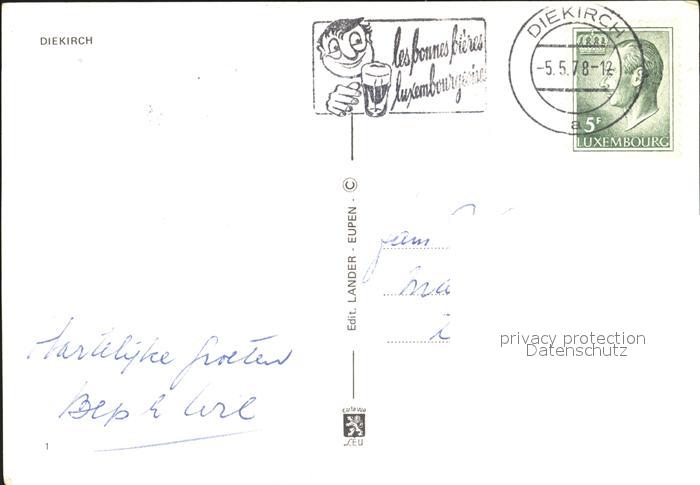 DIEKIRCH
les bonnes bières
luxembourgeoises
DIEKIRCH
-5.5.78-12
a
5F
LUXEMBOURG
Edit. LANDER - EUPEN - ©
fam
privacy protection
Datenschutz
Hartelijke groeten
Bep &
cartevue
S.E.U
1